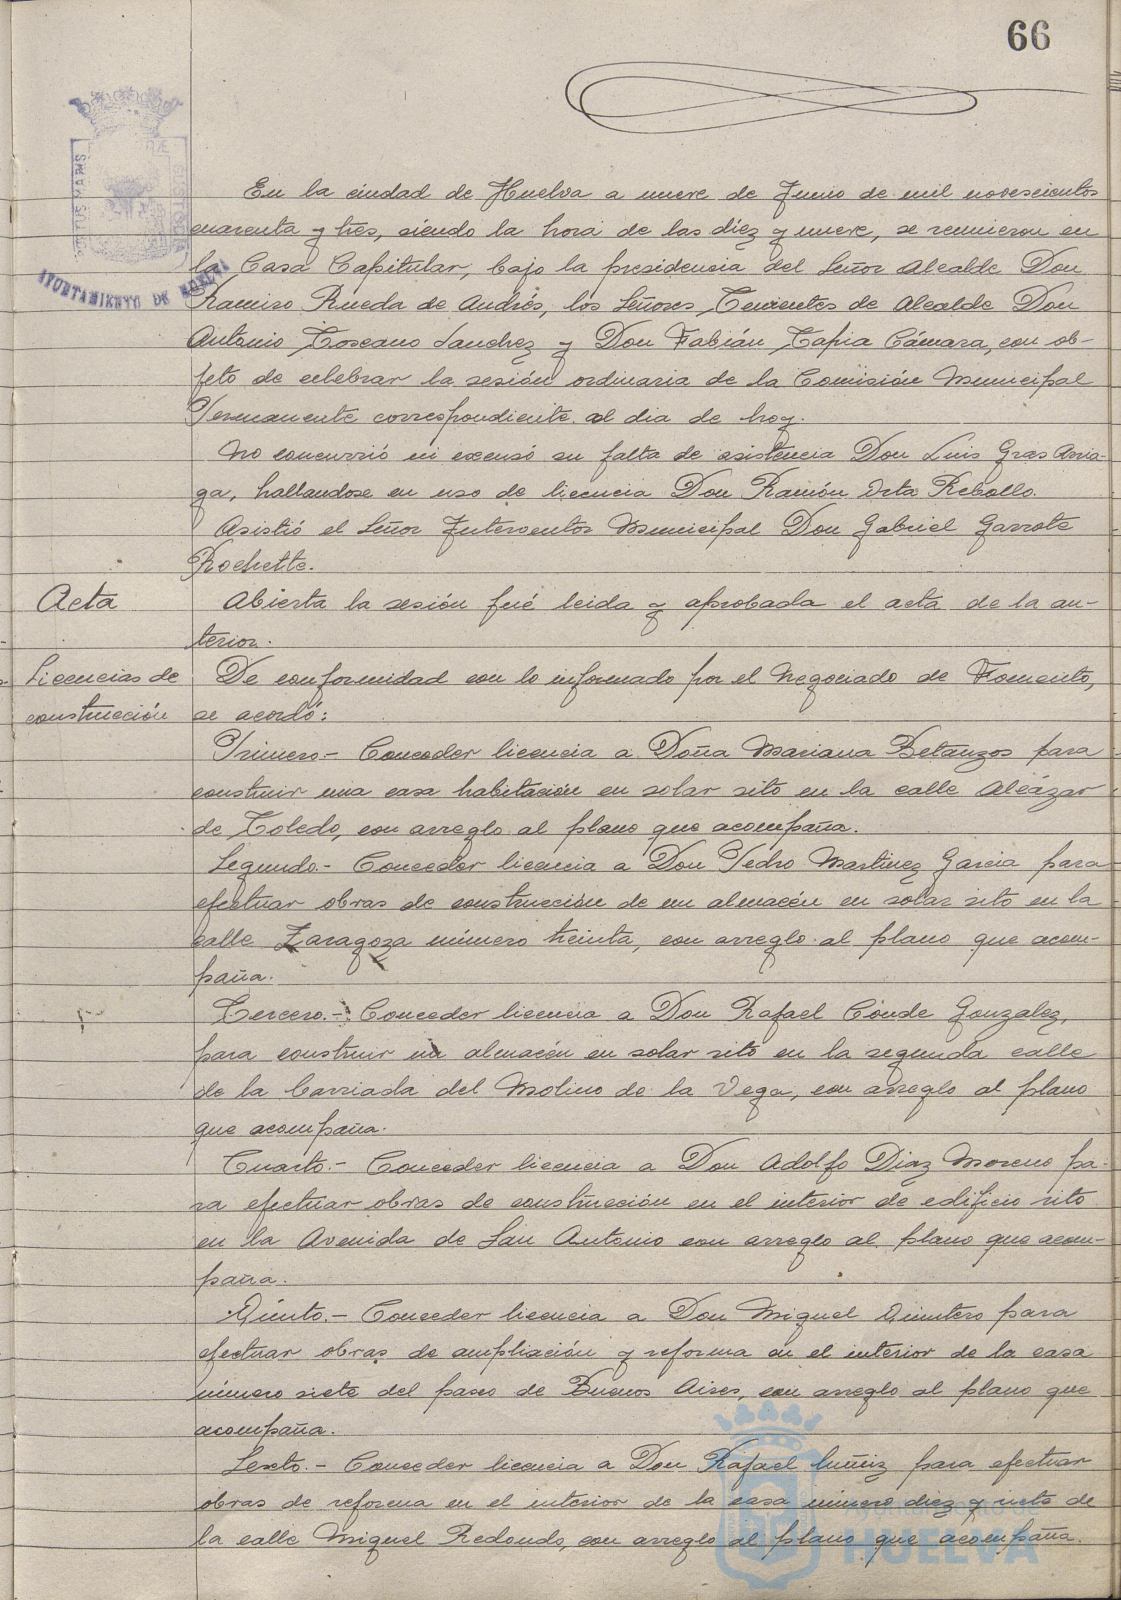 66
AYUNTAMIENTO DE HUELVA
En la ciudad de Huelva a nueve de Junio de mil novescientos
cuarenta y tres, siendo la hora de las diez y nueve, se reunieron en
la Casa Capitular, bajo la presidencia del Señor Alcalde Don
Ramiro Rueda de Andrés, los Señores Tenientes de Alcalde Don
Antonio Toscano Sanchez y Don Fabián Tapia Cámara, con ob-
jeto de celebrar la sesión ordinaria de la Comisión Municipal
Permanente correspondiente al dia de hoy.
No concurrió ni excusó su falta de asistencia Don Luis Gras Arria-
ga, hallandose en uso de licencia Don Ramón Orta Rebollo.
Asistió el Señor Interventor Municipal Don Gabriel Garrote
Rochette.
Acta
Abierta la sesión fué leida y aprobada el acta de la an-
terior.
Licencias de
construcción
De conformidad con lo informado por el Negociado de Fomento,
se acordó:
Primero.- Conceder licencia a Doña Mariana Betanzos para
construir una casa habitación en solar sito en la calle Alcázar
de Toledo, con arreglo al plano que acompaña.
Segundo.- Conceder licencia a Don Pedro Martinez Garcia para
efectuar obras de construcción de un almacén en solar sito en la
calle Zaragoza número treinta, con arreglo al plano que acom-
paña.
Tercero.- Conceder licencia a Don Rafael Conde Gonzalez,
para construir un almacén en solar sito en la segunda calle
de la barriada del Molino de la Vega, con arreglo al plano
que acompaña.
Cuarto.- Conceder licencia a Don Adolfo Diaz Moreno pa-
ra efectuar obras de construcción en el interior de edificio sito
en la Avenida de San Antonio con arreglo al plano que acom-
paña.
Quinto.- Conceder licencia a Don Miguel Quintero para
efectuar obras de ampliación y reforma en el interior de la casa
número siete del paseo de Buenos Aires, con arreglo al plano que
acompaña.
Sexto.- Conceder licencia a Don Rafael Muñiz para efectuar
obras de reforma en el interior de la casa número diez y siete de
la calle Miguel Redondo, con arreglo al plano que acompaña.
Ayuntamiento de
HUELVA